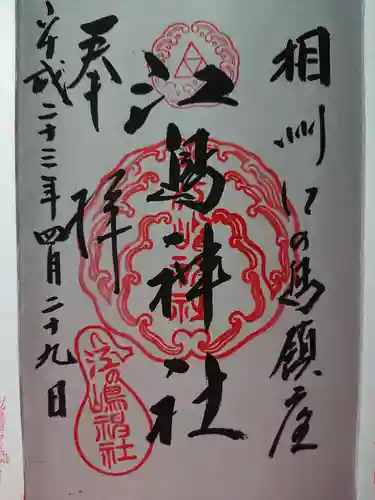 相州江の島鎮座
江島神社
奉拝
平成二十三年四月二十九日
江の嶋神社